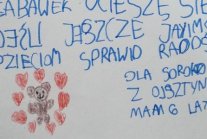 ZABAWEK UCIESZĘ SIĘ
JEŚLI JESZCZE JAKIMŚ
DZIECIOM SPRAWIO RADOŚ
DLA SOROKO
Z OLSZTYN
MAM 6 LAT